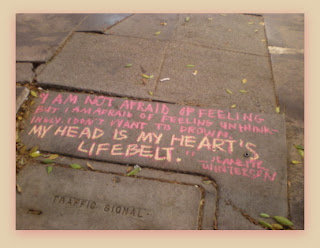 "I AM NOT AFRAID OF FEELING
BUT I AM AFRAID OF FEELING UNTHINK-
INGLY. I DON'T WANT TO DROWN.
MY HEAD IS MY HEART'S
LIFEBELT."
TRAFFIC SIGNAL